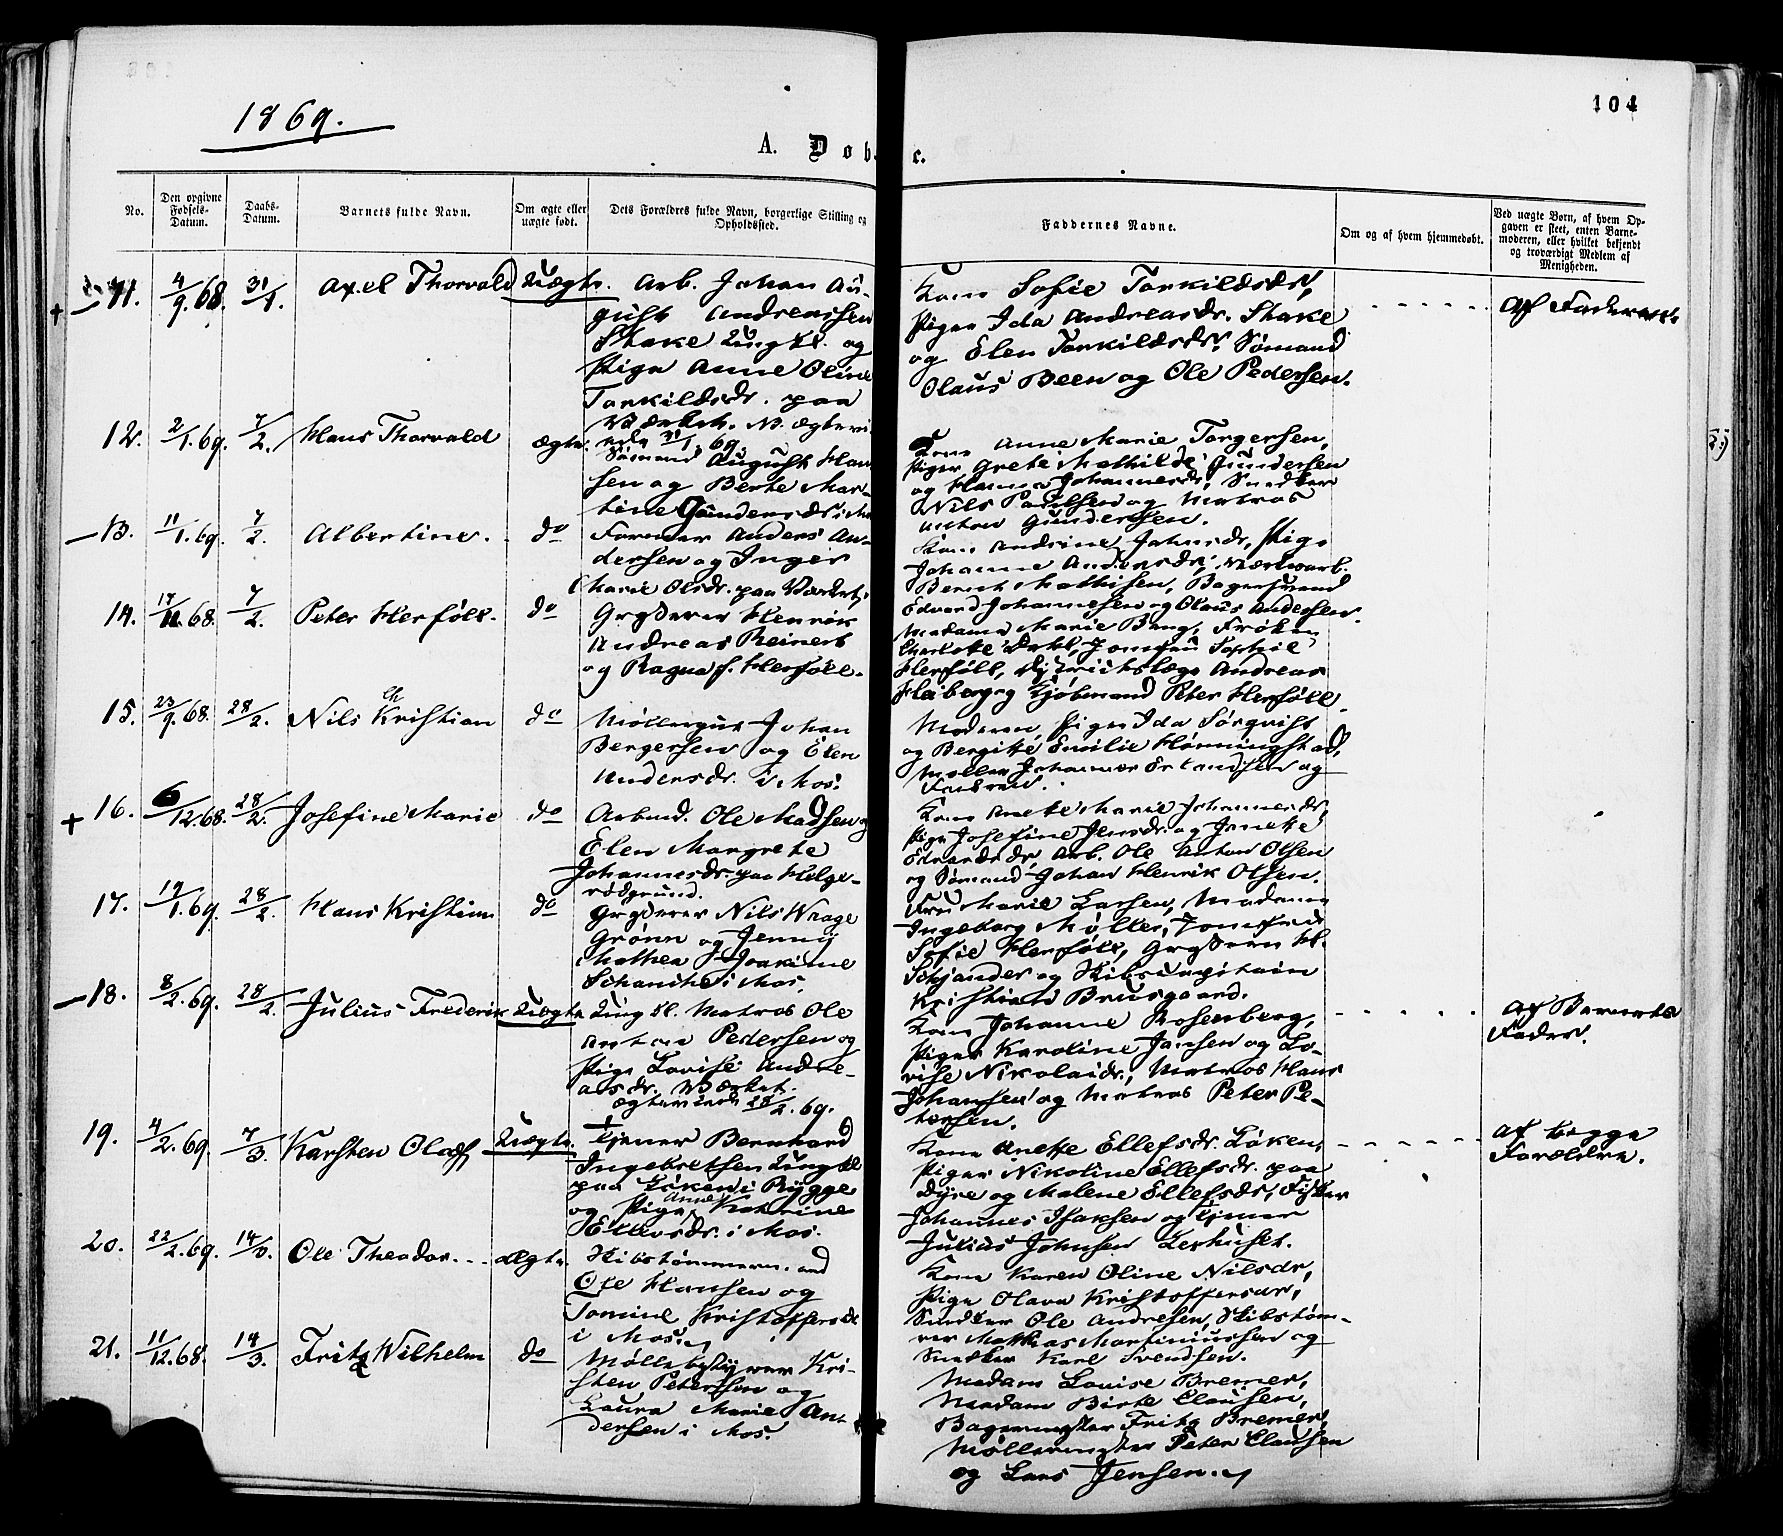 1869.
104
A. Døbte.
No.
Den opgivne Fødsels-Datum.
Daabs-Datum.
Barnets fulde Navn.
Om ægte eller uægte født.
Dets Forældres fulde Navn, borgerlige Stilling og Opholdssted.
Faddernes Navne.
Om og af hvem hjemmedøbt.
Ved uægte Børn, af hvem Opgaven er skeet, enten Barnemoderen, eller hvilket bekjendt og troværdigt Medlem af Menigheden.
11. 4/9.68. 31/1. Axel Thorvald Uægte.
Arb. Johan Au-
gust Andreassen
Skake Ung kl. og
Pige Anne Oline
Torkildsdr. paa
Værket. N. ægtevi-
ede 31/1 69.
Kone Sofie Torkildsdr,
Piger Ida Andreasdr. Skake
og Elen Torkildsdr. Sømand
Olaus Been og Ole Pedersen.
Af Faderen.
12. 2/1.69. 7/2. Hans Thorvald ægte.
Sømand August Han-
sen og Berte Mar-
tine Gundersdr i Mos
Kone Anne Marie Torgersen,
Piger Grete Mathilde Gundersen
og Hanna Johannesdr, Snedker
Nils Paulsen og Matros
Anton Gundersen.
13. 11/1.69. 7/2. Albertine. do
Former Anders An-
dersen og Inger
Marie Olsdr. paa Værket.
Kone Andrine Johnsdr, Pige
Johanne Andersdr, Værksarb.
Bernt Mathisen, Bagersvend
Edvard Johannesen og Olaus Andersen.
14. 17/11.68. 7/2. Peter Herföll. do
Grosserer Henrik
Andreas Reinert
og Ragna f. Herföll.
Madame Marie Bang, Frøken
Charlotte Dahl, Jomfru Sophie
Herföll, Distriktslæge Andreas
Heiberg og Kjöbmand Peter Herföll.
15. 23/9.68. 28/2. Nils Kristian do
Ch
Møllergut Johan
Bergersen og Elen
Andersdr. i Mos.
Moderen, Piger Ida Sörqvist
og Bergitte Emilie Hönningstad,
Møller Johannes Erlandsen og
Faderen.
16. 6/12.68. 28/2. Josefine Marie do
Arbmd. Ole Madsen og
Elen Margrete
Johannesdr paa Helge-
rödgrund.
Kone Anette Marie Johannesdr,
Pige Josefine Jensdr. og Janette
Edvardsdr, Arb. Ole Anton Olsen
og Sømand Johan Henrik Olsen.
17. 19/1.69. 28/2. Hans Kristian do
Grosserer Nils Wrage
Grönn og Jenny
Mathea Joakime
Schanche i Mos.
Fru Marie Larsen, Madame
Ingeborg Møller, Jomfru
Sofie Herföll, Grosserer H.
Schjander og Skibscapitain
Kristian Brusgaard.
18. 8/2.69. 28/2. Julius Frederik Uægte.
Ung kl. Matros Ole
Anton Pedersen og
Pige Lovise Andre-
asdr. Værket.
Ægteviede 28/2.69.
Kone Johanne Rosenberg,
Piger Karoline Jansen og Lo-
vise Nikolaidr., Matros Hans
Johansen og Matros Peter Pe-
tersen.
Af Barnets
Fader.
19. 4/2.69. 7/3. Karsten Olaf Uægte.
Tjener Bernhard
Ingebretsen Ung kl
paa Löken i Rygge
og Pige Anne Katrine
Ellevsdr. i Mos.
Kone Anette Ellefsdr. Löken,
Piger Nikoline Ellefsdr. paa
Dyre og Malene Ellefsdr, Fisker
Johannes Isaksen og Tjener
Julius Johnsen Lerhuset.
Af begge
Forældre.
20. 22/2.69. 14/3. Ole Theodor. ægte.
Skibstömmermand
Ole Hansen og
Tomine Kristoffersdr
i Mos.
Kone Karen Oline Nilsdr,
Pige Olava Kristoffersdr,
Snedker Ole Andresen, Skibstöm-
rer Mathias Martiniussen og
Snedker Karl Svendsen.
21. 11/12.68. 14/3. Fritz Wilhelm do
Møllebestyrer Kri-
sten Petersen og
Laura Marie An-
dersen i Mos.
Madam Louise Bremer,
Madam Birte Clausen,
Bagermester Fritz Bremer,
Møllermester Peter Clausen
og Lars Jensen.